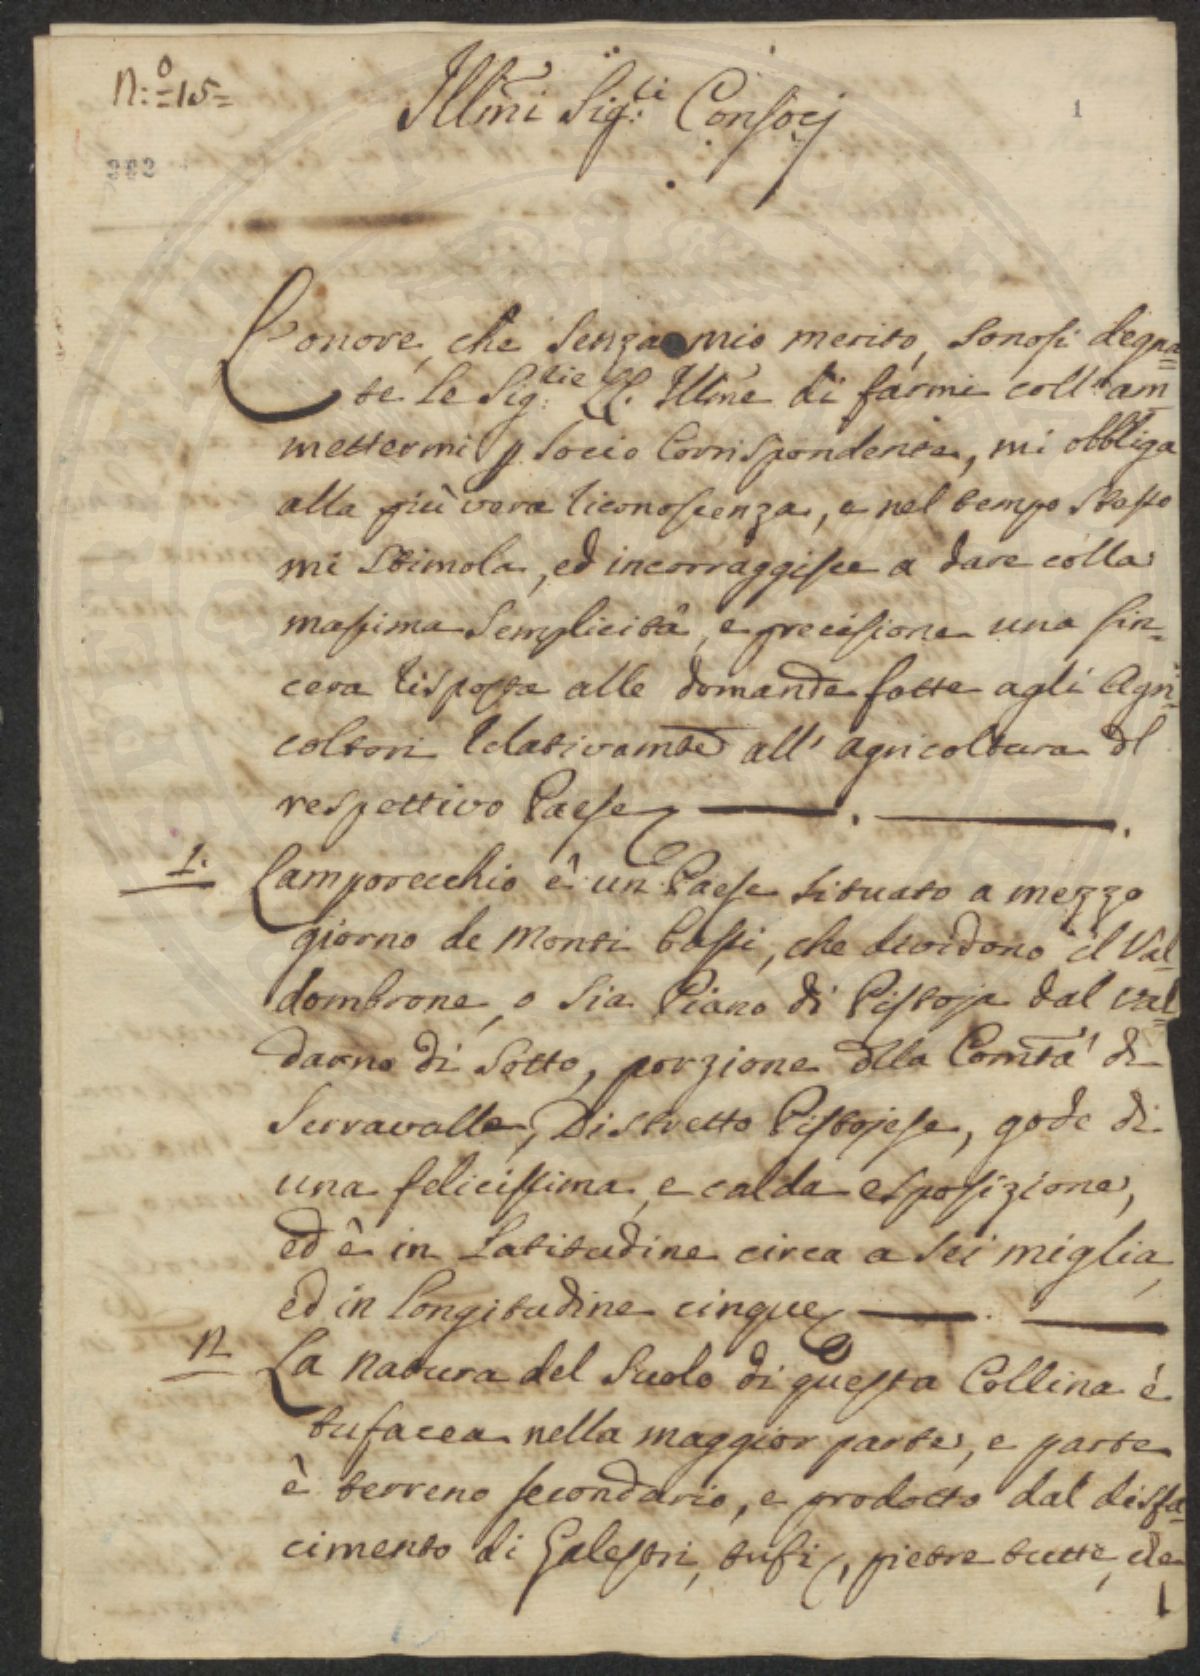 N:º =15=
Illmi Sig:ri Consocj
1
382
L'onore, che senza mio merito, sonosi degna=
te le Sig:rie LL. Illme di farmi coll'am
mettermi p socio Corrispondente, mi obbliga
alla più vera riconoscenza, e nel tempo stesso
mi stimola, ed incorraggisce a dare colla
massima semplicità, e precisione una sin=
cera risposta alle domande fatte agli Agri=
coltori relativamte all'agricoltura dl
respettivo Paese.
1. Lamporecchio è un Paese situato a mezzo
giorno de Monti bassi, che dividono il Val=
dombrone, o sia Piano di Pistoja dal Val
darno di Sotto, porzione dlla Comtà di
Serravalle, Distretto Pistojese, gode di
una felicissima, e calda esposizione,
ed è in Latitudine circa a sei miglia,
ed in Longitudine cinque.
La natura del Suolo di questa Collina è
tufacea nella maggior parte, e parte
è terreno secondario, e prodotto dal disfa=
cimento di Galestri, tufi, pietre tutte, che